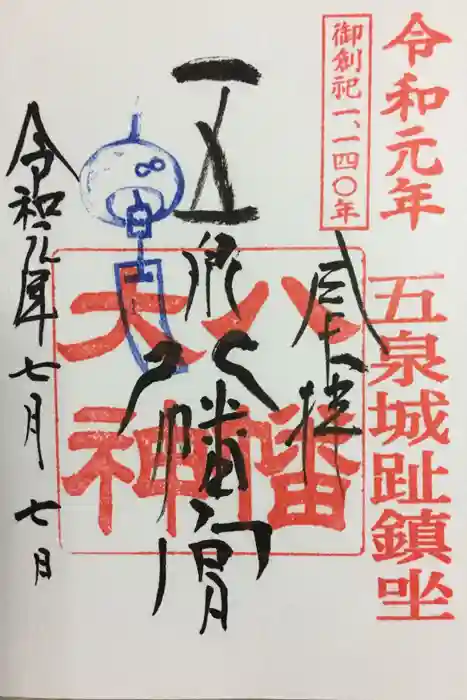 令和元年
五泉城趾鎮坐
御創祀一、一四〇年
五泉八幡宮
八幡
大神
令和元年七月七日